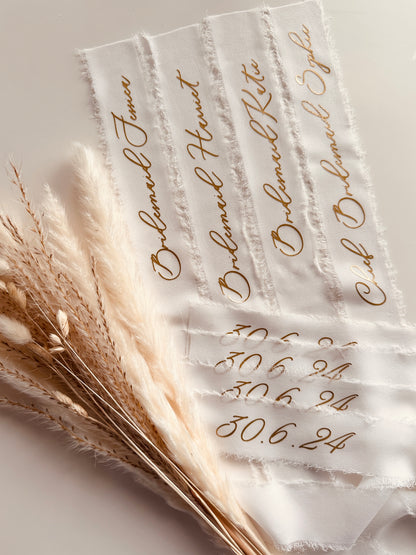 Bridesmaid Jessica
Bridesmaid Harriet
Bridesmaid Katie
Chief Bridesmaid Sophie
30.6.24
30.6.24
30.6.24
30.6.24